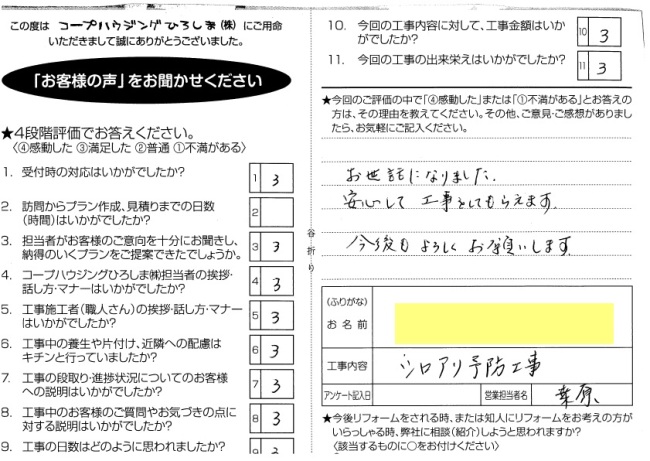 この度は コープハウジングひろしま(株) にご用命
いただきまして誠にありがとうございました。
「お客様の声」をお聞かせください
★4段階評価でお答えください。
〈④感動した ③満足した ②普通 ①不満がある〉
1. 受付時の対応はいかがでしたか? 1 3
2. 訪問からプラン作成、見積りまでの日数
(時間)はいかがでしたか? 2
3. 担当者がお客様のご意向を十分にお聞きし、
納得のいくプランをご提案できたでしょうか? 3 3
4. コープハウジングひろしま㈱担当者の挨拶・
話し方・マナーはいかがでしたか? 4 3
5. 工事施工者(職人さん)の挨拶・話し方・マナー
はいかがでしたか? 5 3
6. 工事中の養生や片付け、近隣への配慮は
キチンと行っていましたか? 6 3
7. 工事の段取り・進捗状況についてのお客様
への説明はいかがでしたか? 7 3
8. 工事中のお客様のご質問やお気づきの点に
対する説明はいかがでしたか? 8 3
9. 工事の日数はどのように思われましたか? 9 3
谷折り
10. 今回の工事内容に対して、工事金額はいか
がでしたか? 10 3
11. 今回の工事の出来栄えはいかがでしたか? 11 3
★今回のご評価の中で「④感動した」または「①不満がある」とお答えの
方は、その理由を教えてください。その他、ご意見・ご感想がありまし
たら、お気軽にご記入ください。
お世話になりました。
安心して 工事をしてもらえます。
今後も よろしく お願いします
(ふりがな)
お名前
工事内容 シロアリ予防工事
アンケート記入日 営業担当者名 桒原
★今後リフォームをされる時、または知人にリフォームをお考えの方が
いらっしゃる時、弊社に相談(紹介)しようと思われますか?
〈該当するものに○をお付けください〉